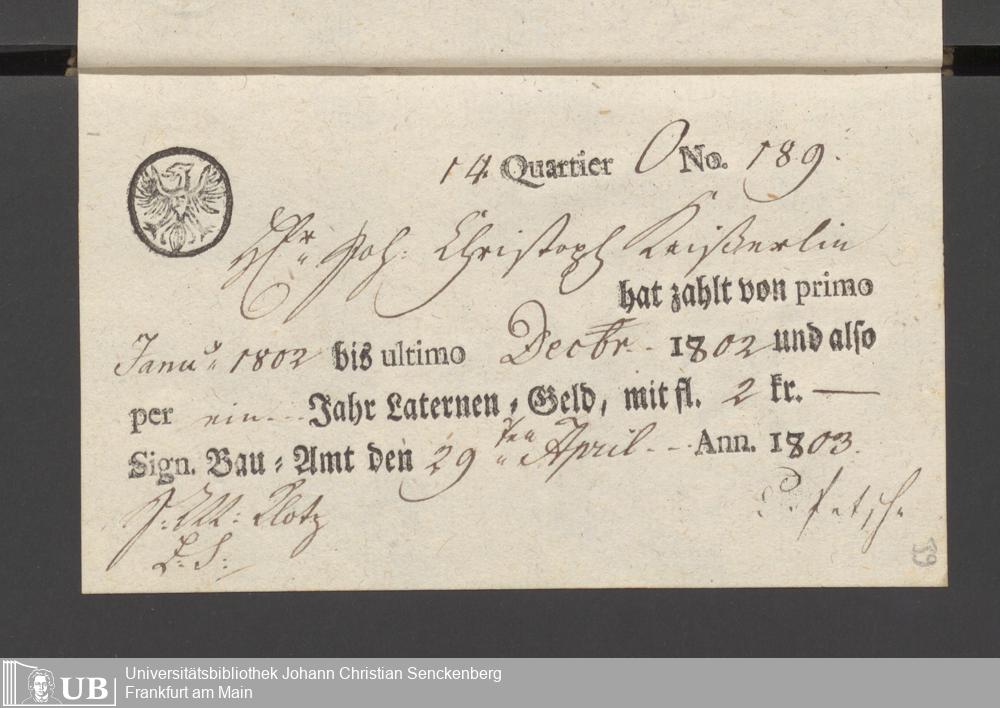 14. Quartier O No. 189.
Hr. Joh: Christoph Keißerlin
hat zahlt von primo
Janu. 1802 bis ultimo Decbr. 1802 und also
per ein Jahr Laternen-Geld, mit fl. 2 kr. —
Sign. Bau-Amt den 29ten April Ann. 1803.
J: M: Klotz
39
Universitätsbibliothek Johann Christian Senckenberg
UB Frankfurt am Main